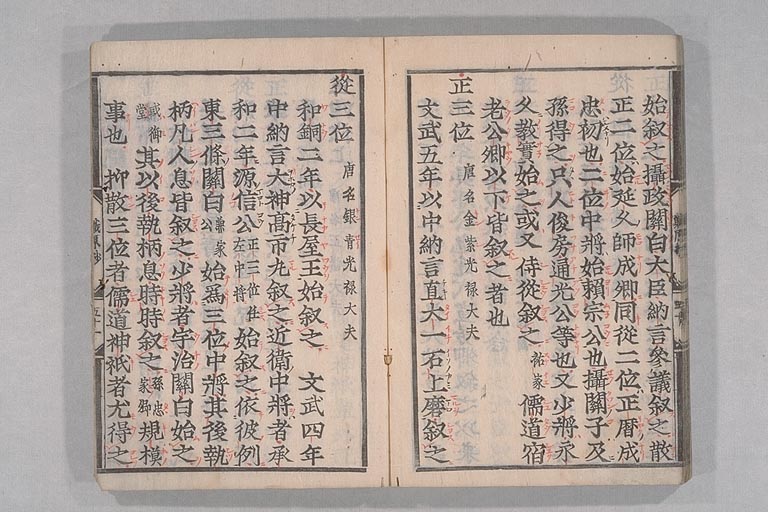 始叙之攝政關白大臣納言參議叙之散
正二位始延久師成卿同從二位正曆成
忠初也二位中將始賴宗公也攝關子及
孫得之只人俊房通光公等也又少將永
久教實始之或又侍從叙之祐家儒道宿
老公卿以下皆叙之者也
正三位 唐名金紫光禄大夫
文武五年以中納言直大一石上磨叙之
從三位 唐名銀青光禄大夫
和銅二年以長屋王始叙之 文武四年
中納言大神高市九叙之近衛中將者承
和二年源信公正三位任左中將始叙之依彼例
東三條關白公兼家始爲三位中將其後執
柄凡人息皆叙之少將者宇治關白始之
戒御堂其以後執柄息時時叙之忠孫家卿規模
事也 抑散三位者儒道神祇者尤得之